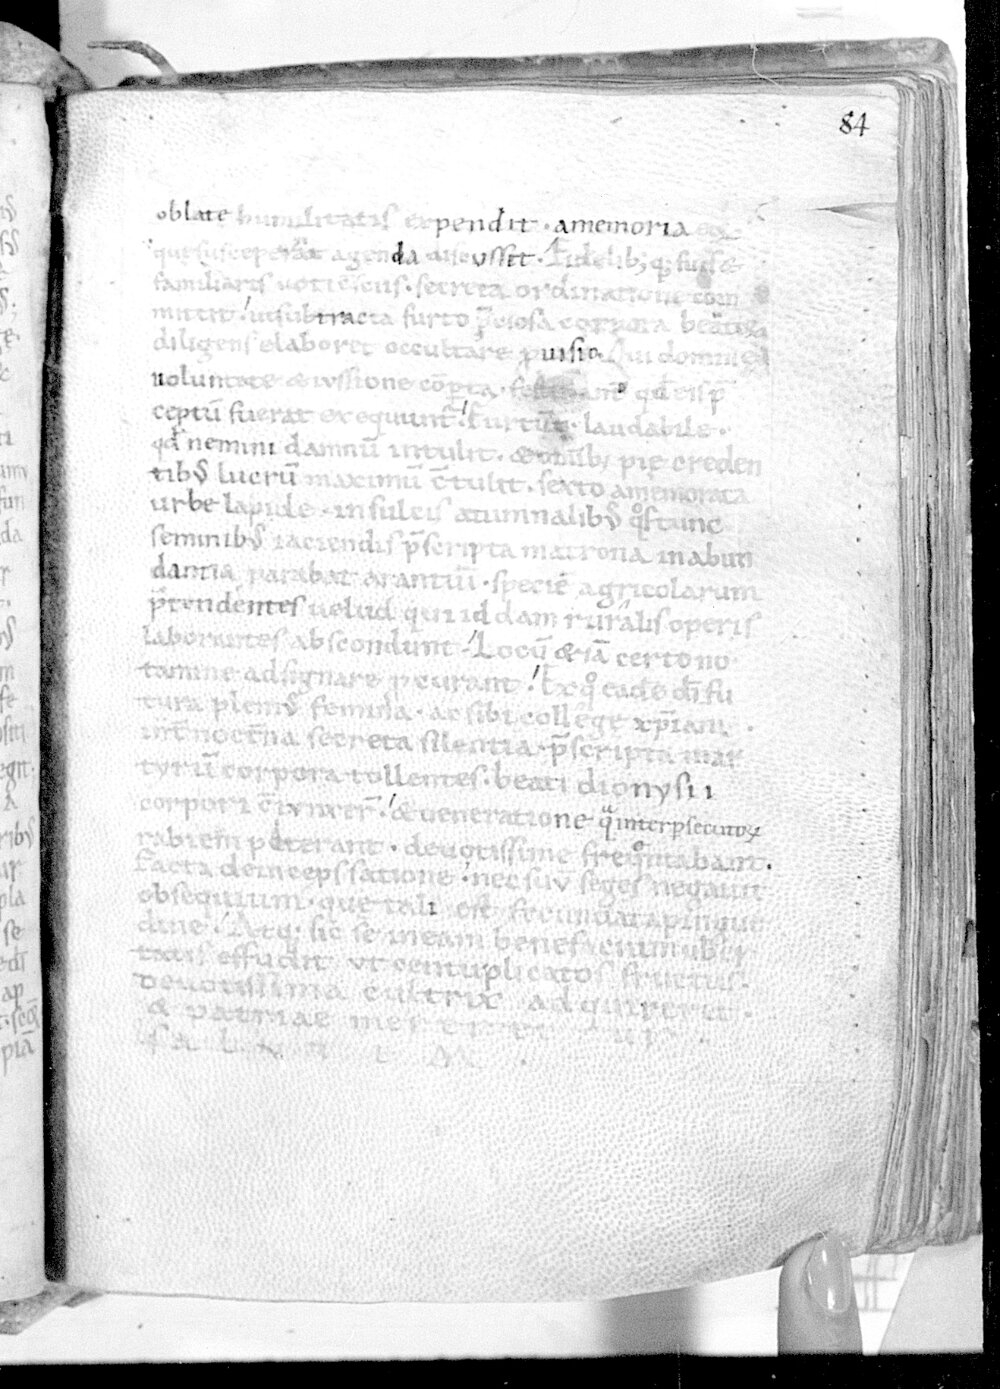 84
oblate humilitatis expendit · a memoria
que susceperat agenda discussit · Fidelib; q; suis &
familiaris uoti consciis · secreta ordinatione com
mittit · ut subtracta furto p̄ciosa corpora beator
diligens elaboret occultare puisio · Qui domine
uoluntate & iussione cōpta · festinant qd̄ eis p̄
ceptū fuerat exequunt · Furtum laudabile ·
qd̄ nemini damnū intulit · & omīb; pie creden
tib; lucrū maximū c̄tulit · sexto a memorata
urbe lapide · in sulcis autumnalib; qos tunc
seminib; iaciendis p̄scripta matrona in abun
dantia parabat arantiū · specie agricolarum
p̄tendentes uelud quiddam ruralis operis
laborantes abscondunt · Locū & iā certo no
tamine adsignare pcurant · Ex qo eadē dī fu
tura plenius femina · ac sibi college xp̄iani ·
int̄ noct̄na secreta silentia · p̄scripta mar
tyrū corpora tollentes · beati dionysii
corpori c̄iunxer̄ · & ueneratione qa inter psecutor
rabiem poterant · deuotissime freqntabant ·
Facta deinceps satione · nec suū seges negauit
obsequium · que tali est fecundata pingue
dine · Atq; sic se in eam beneficium uber
tatis effudit ut centuplicatos fructus ·
deuotissima cultrix adquireret ·
& patriae